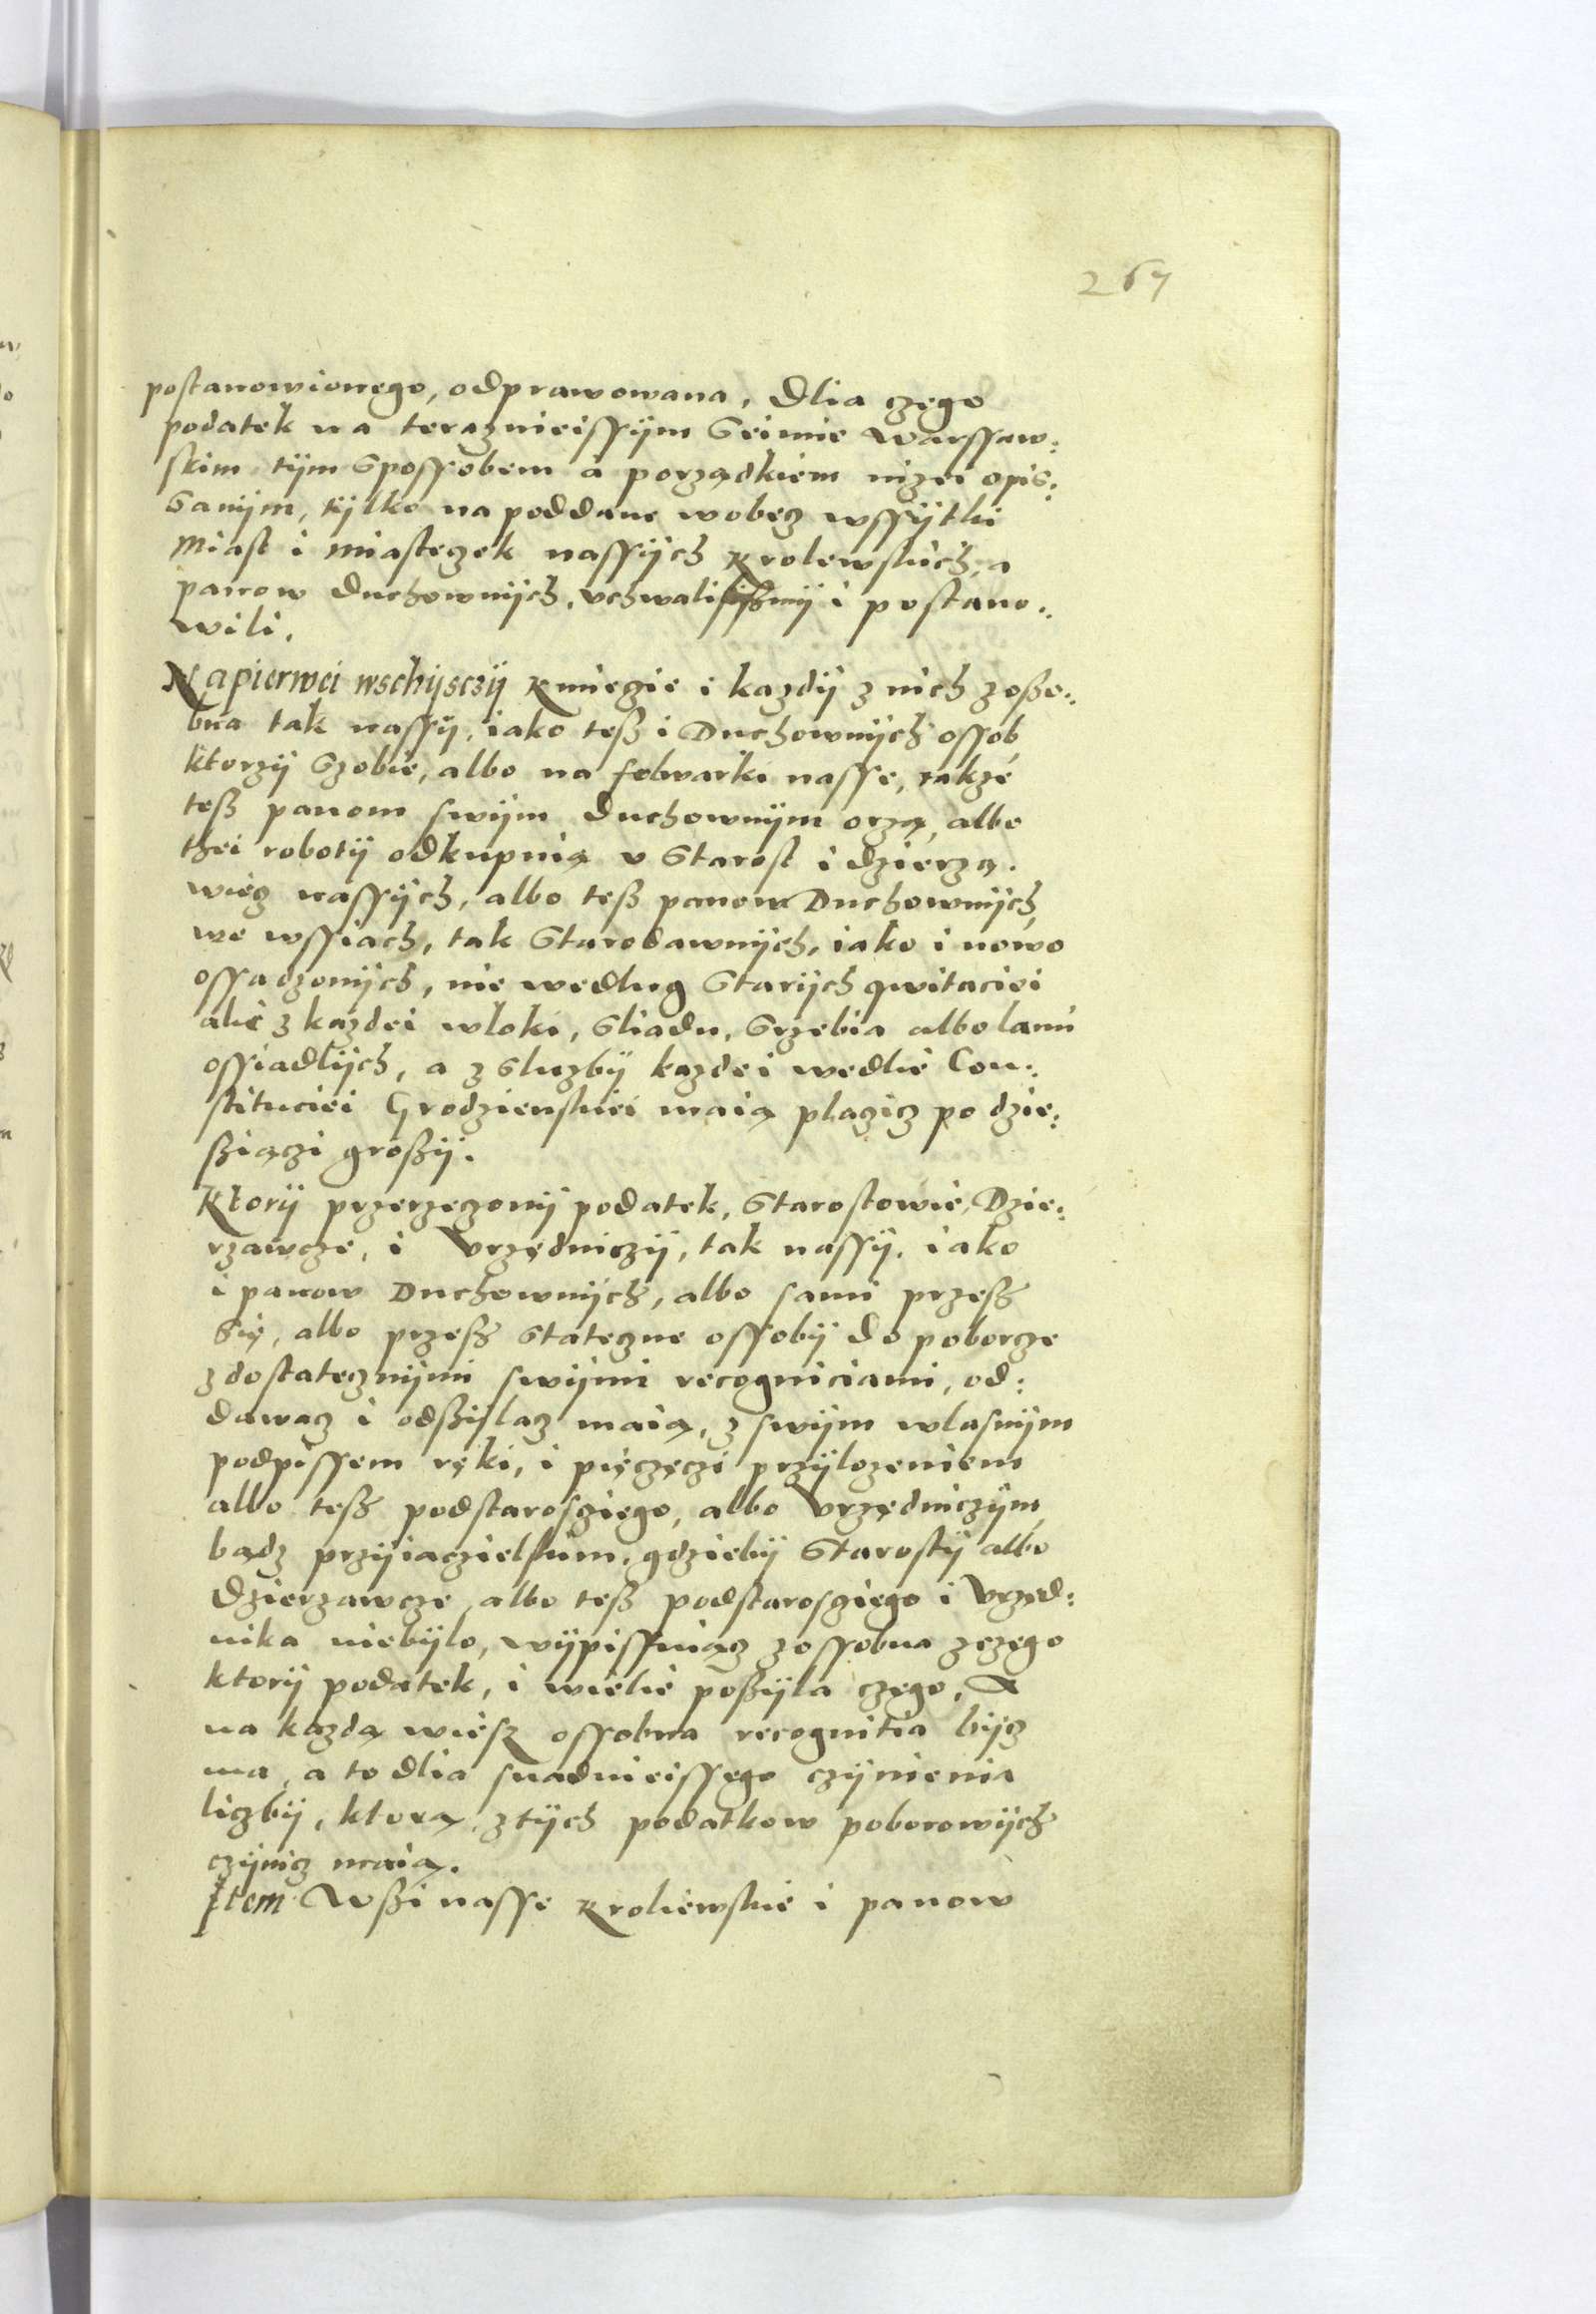 267
postanowionego, odprawowana, Dlia czego
podatek na teraznieissÿm Seimie Warssaw:
skim tÿm Spossobem a porządkiem nizei opis:
Sanÿm, tÿlko na poddane wobecz wssÿtki
Miast i Miasteczek nassÿch Krolewskich, a
panow Duchownÿch, vchwalilissmÿ i postano:
wili.
Napierwei wschÿsczÿ Kmiecie i kazdÿ z nich zoßo:
bna tak nassÿ, iako teß i Duchownÿch ossob
ktorzÿ Szobie, albo na folwarki nasse, takze
teß panom swÿm duchownÿm orzą, albo
thei robotÿ odkupnią v Starost i dzierza.
wiec nassÿch, albo teß panow Duchownÿch,
we wssiach, tak Starodawnÿch, iako i nowo
ossadzonÿch, nie wedlug Starÿch qwitaciei
alie z kazdei wloki, Sliadu, Grzebia albo lanu
ossiadlÿch, a z sluzbÿ kazdei wedlie Con:
stituciei Grodzienskiei maią placzicz po dzie:
ßiączi großÿ.
Ktorÿ przerzeczonÿ podatek, Starostowie, Dzie:
rzawcze, i Vrzędniczÿ, tak nassÿ, iako
i panow Duchownÿch, albo sami przeß
Się, albo przeß Stateczne ossobÿ do poborcze
z dostatecznÿmi swÿmi recogniciami, od:
dawacz i odßislacz maią, z swÿm wlasnÿm
podpissem ręki, i pięczęczi przÿlozeniem
albo teß podstarosziego, albo Vrzędniczÿm
bądz przÿiaczielskim, gdziebÿ Starostÿ albo
Dzierzawcze, albo teß podstarosziego i Vrzęd:
nika niebÿlo, wÿpissuiącz zossobna zczego
ktorÿ podatek, i wielie poßÿla czego, A
na kazdą wiesz ossobna recognitia bÿcz
ma, a to dlia snadnieissego czÿnienia
liczbÿ, ktorą z tÿch podatkow poborowÿch
czÿnicz maią.
Item Wßi nasse Kroliewskie i panow